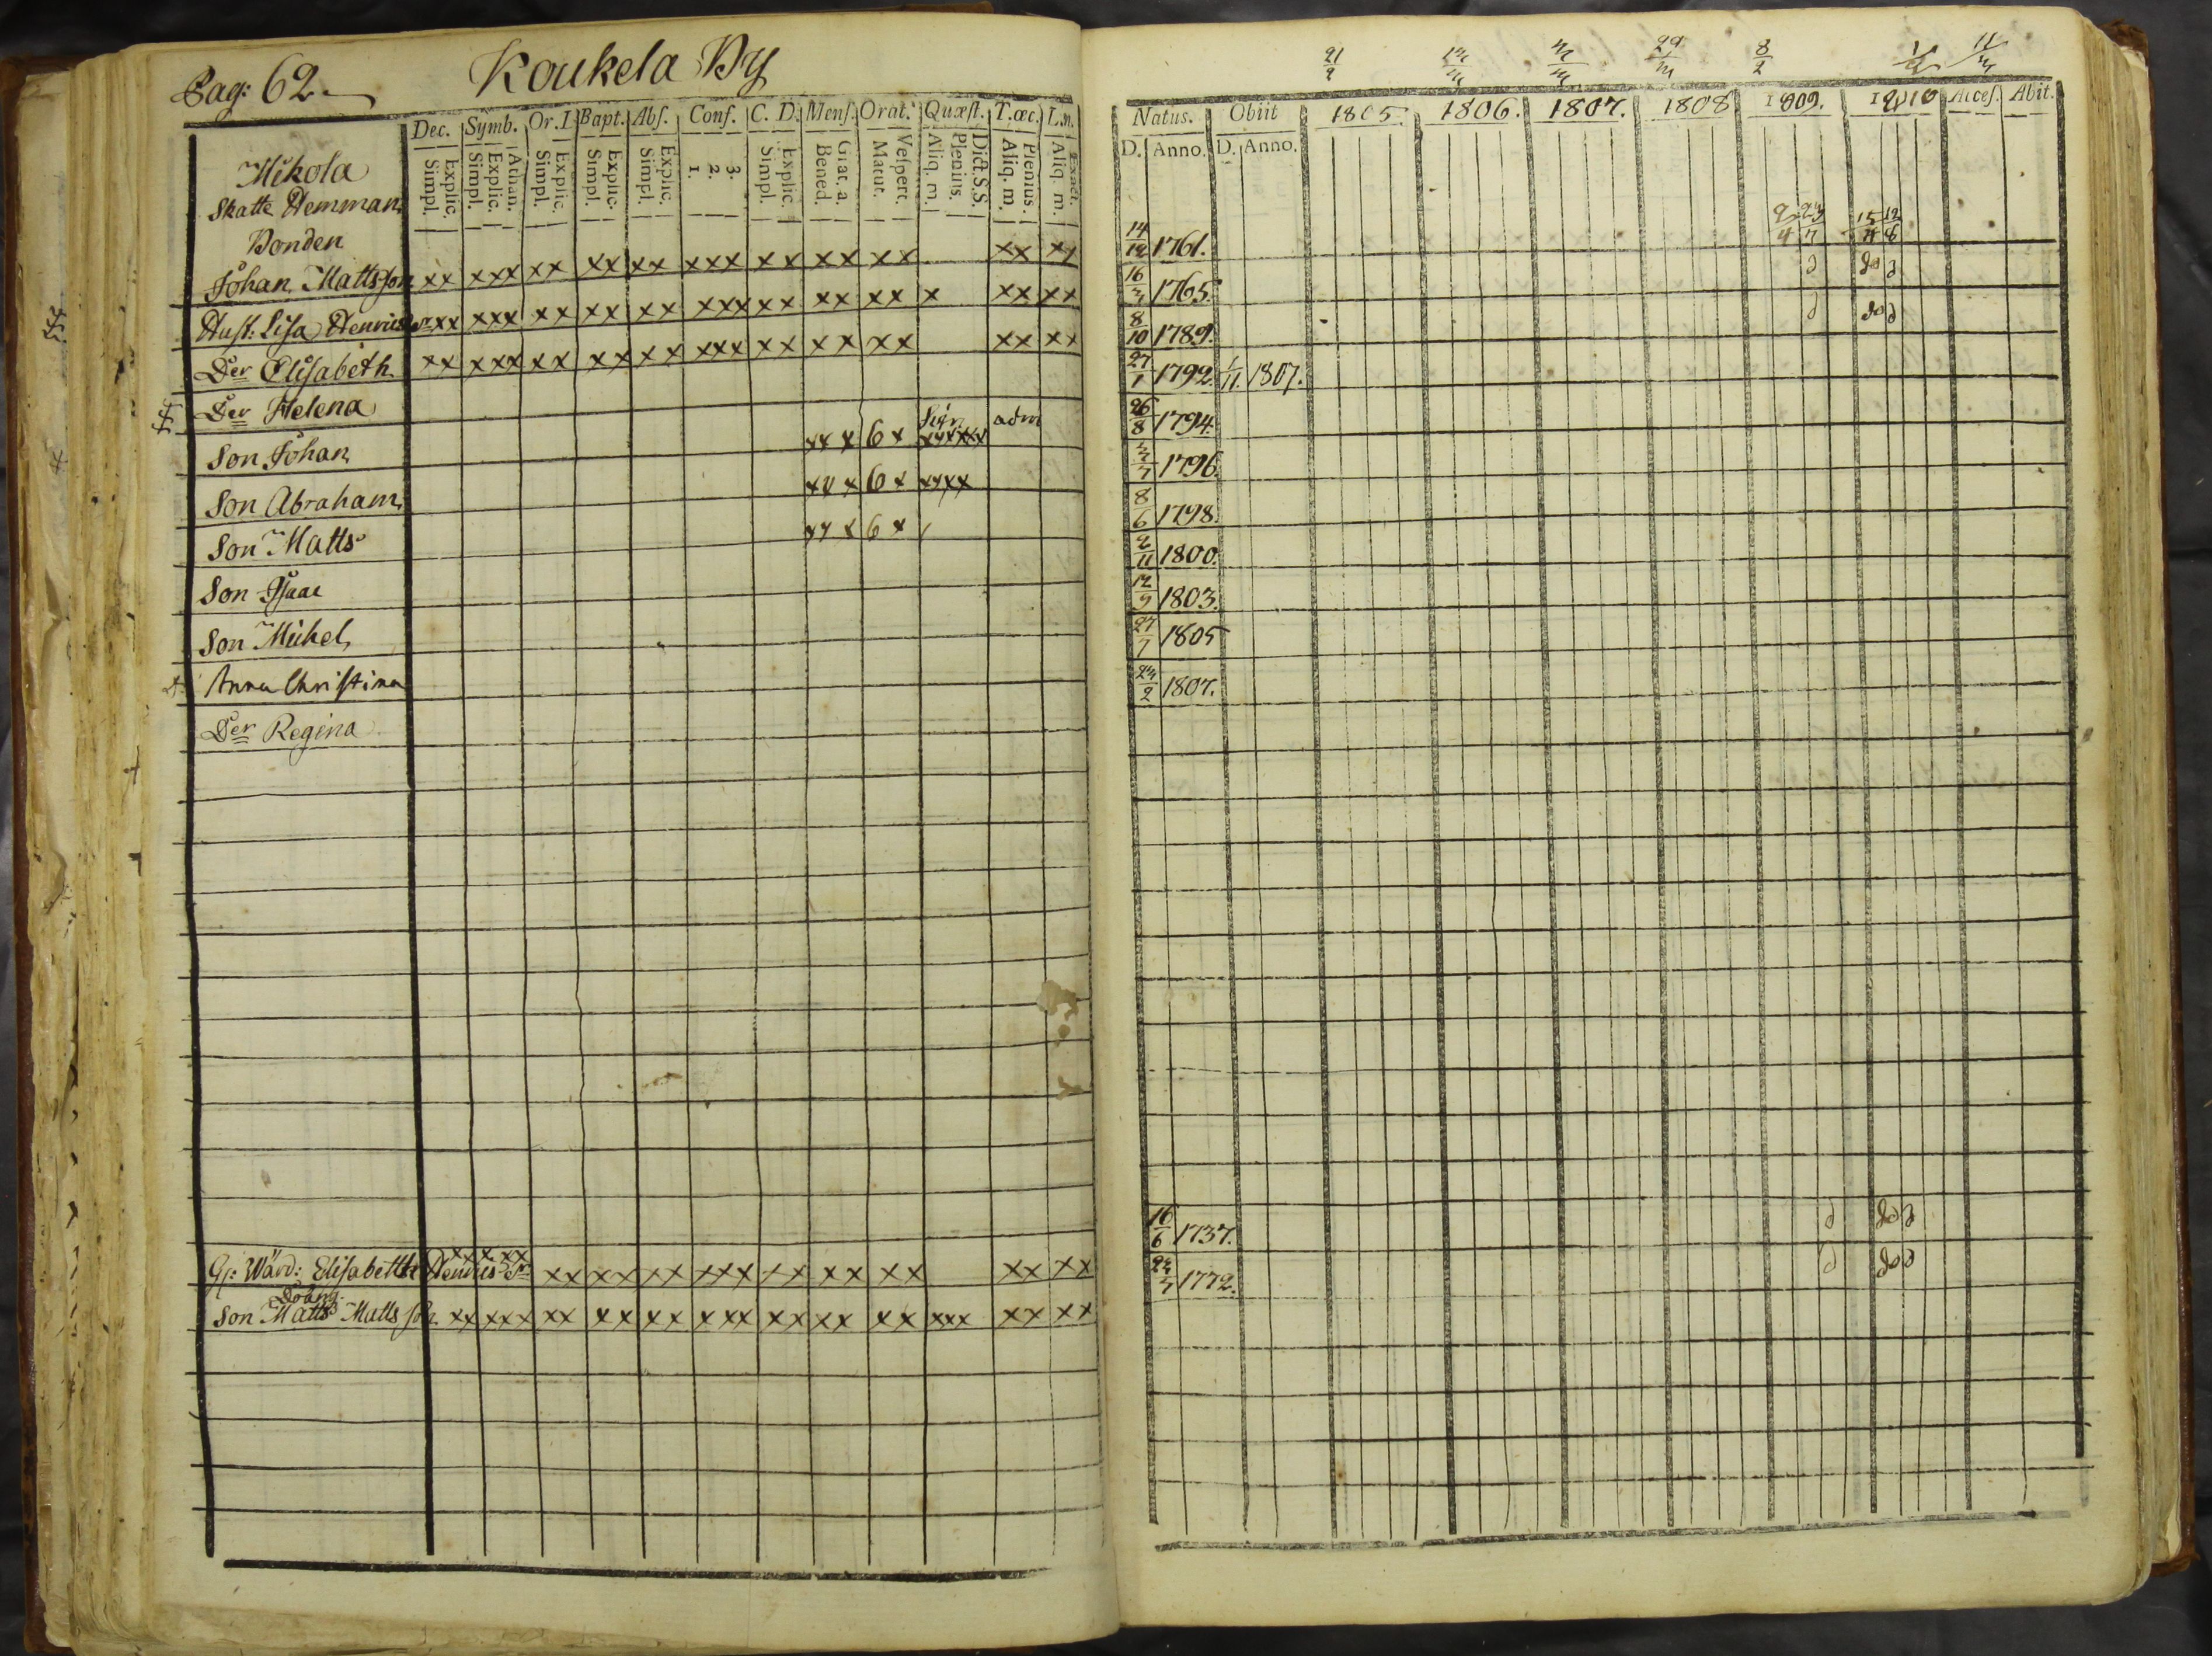 Pag: 62. Koukela By
Dec. Symb. Or. D. Bapt. Abſ. Conf. C. D. Menſ. Orat. Quæſt. T. œc. L. n.
Explic. Simpl. Athan. Explic. Simpl. Explic. Simpl. Explic. Simpl. Explic. Simpl. 3. 2. 1. Explic. Simpl. Grat. a. Bened. Veſpert. Matut. Dict. S. S. Plenius. Aliq. m. Plenius. Aliq. m. Exact. Aliq. m.
Mikola
Skatte Hemman
Bonden
Johan Mattsſon xx xxx xx xx xx xxx xx xx xx xx xx
Huſt: Liſa Henricsdr xx xxx xx xx xx xxx xx xx xx x xx xx
Der Eliſabeth xx xxx xx xx xx xxx xx xx xx xx xx
Der Helena
Son Johan xx x 6 x xxxxx adm
Son Abraham xx x 6 x xxxx
Son Matts xx x 6 x
Son Iſaac
Son Mickel
Anna Chriſtina
Der Regina
Gſ: Wärd: Eliſabeth Henrics Dr xxx xx xx xx xx xxx xx xx xx xx xx
Son Matts Mattsſon xx xxx xx xx xx xxx xx xx xx xxx xx xx
21/2 29/3 8/2 11/3
Natus. Obiit 1805. 1806. 1807. 1808 1809. 1810 Acceſ. Abit.
D. Anno. D. Anno.
14/12 1761.
16/3 1765.
8/10 1789.
27/1 1792. 1/11 1807.
26/8 1794.
3/7 1796.
8/6 1798.
2/11 1800.
12/9 1803.
27/7 1805
24/2 1807.
16/6 1737.
1772.